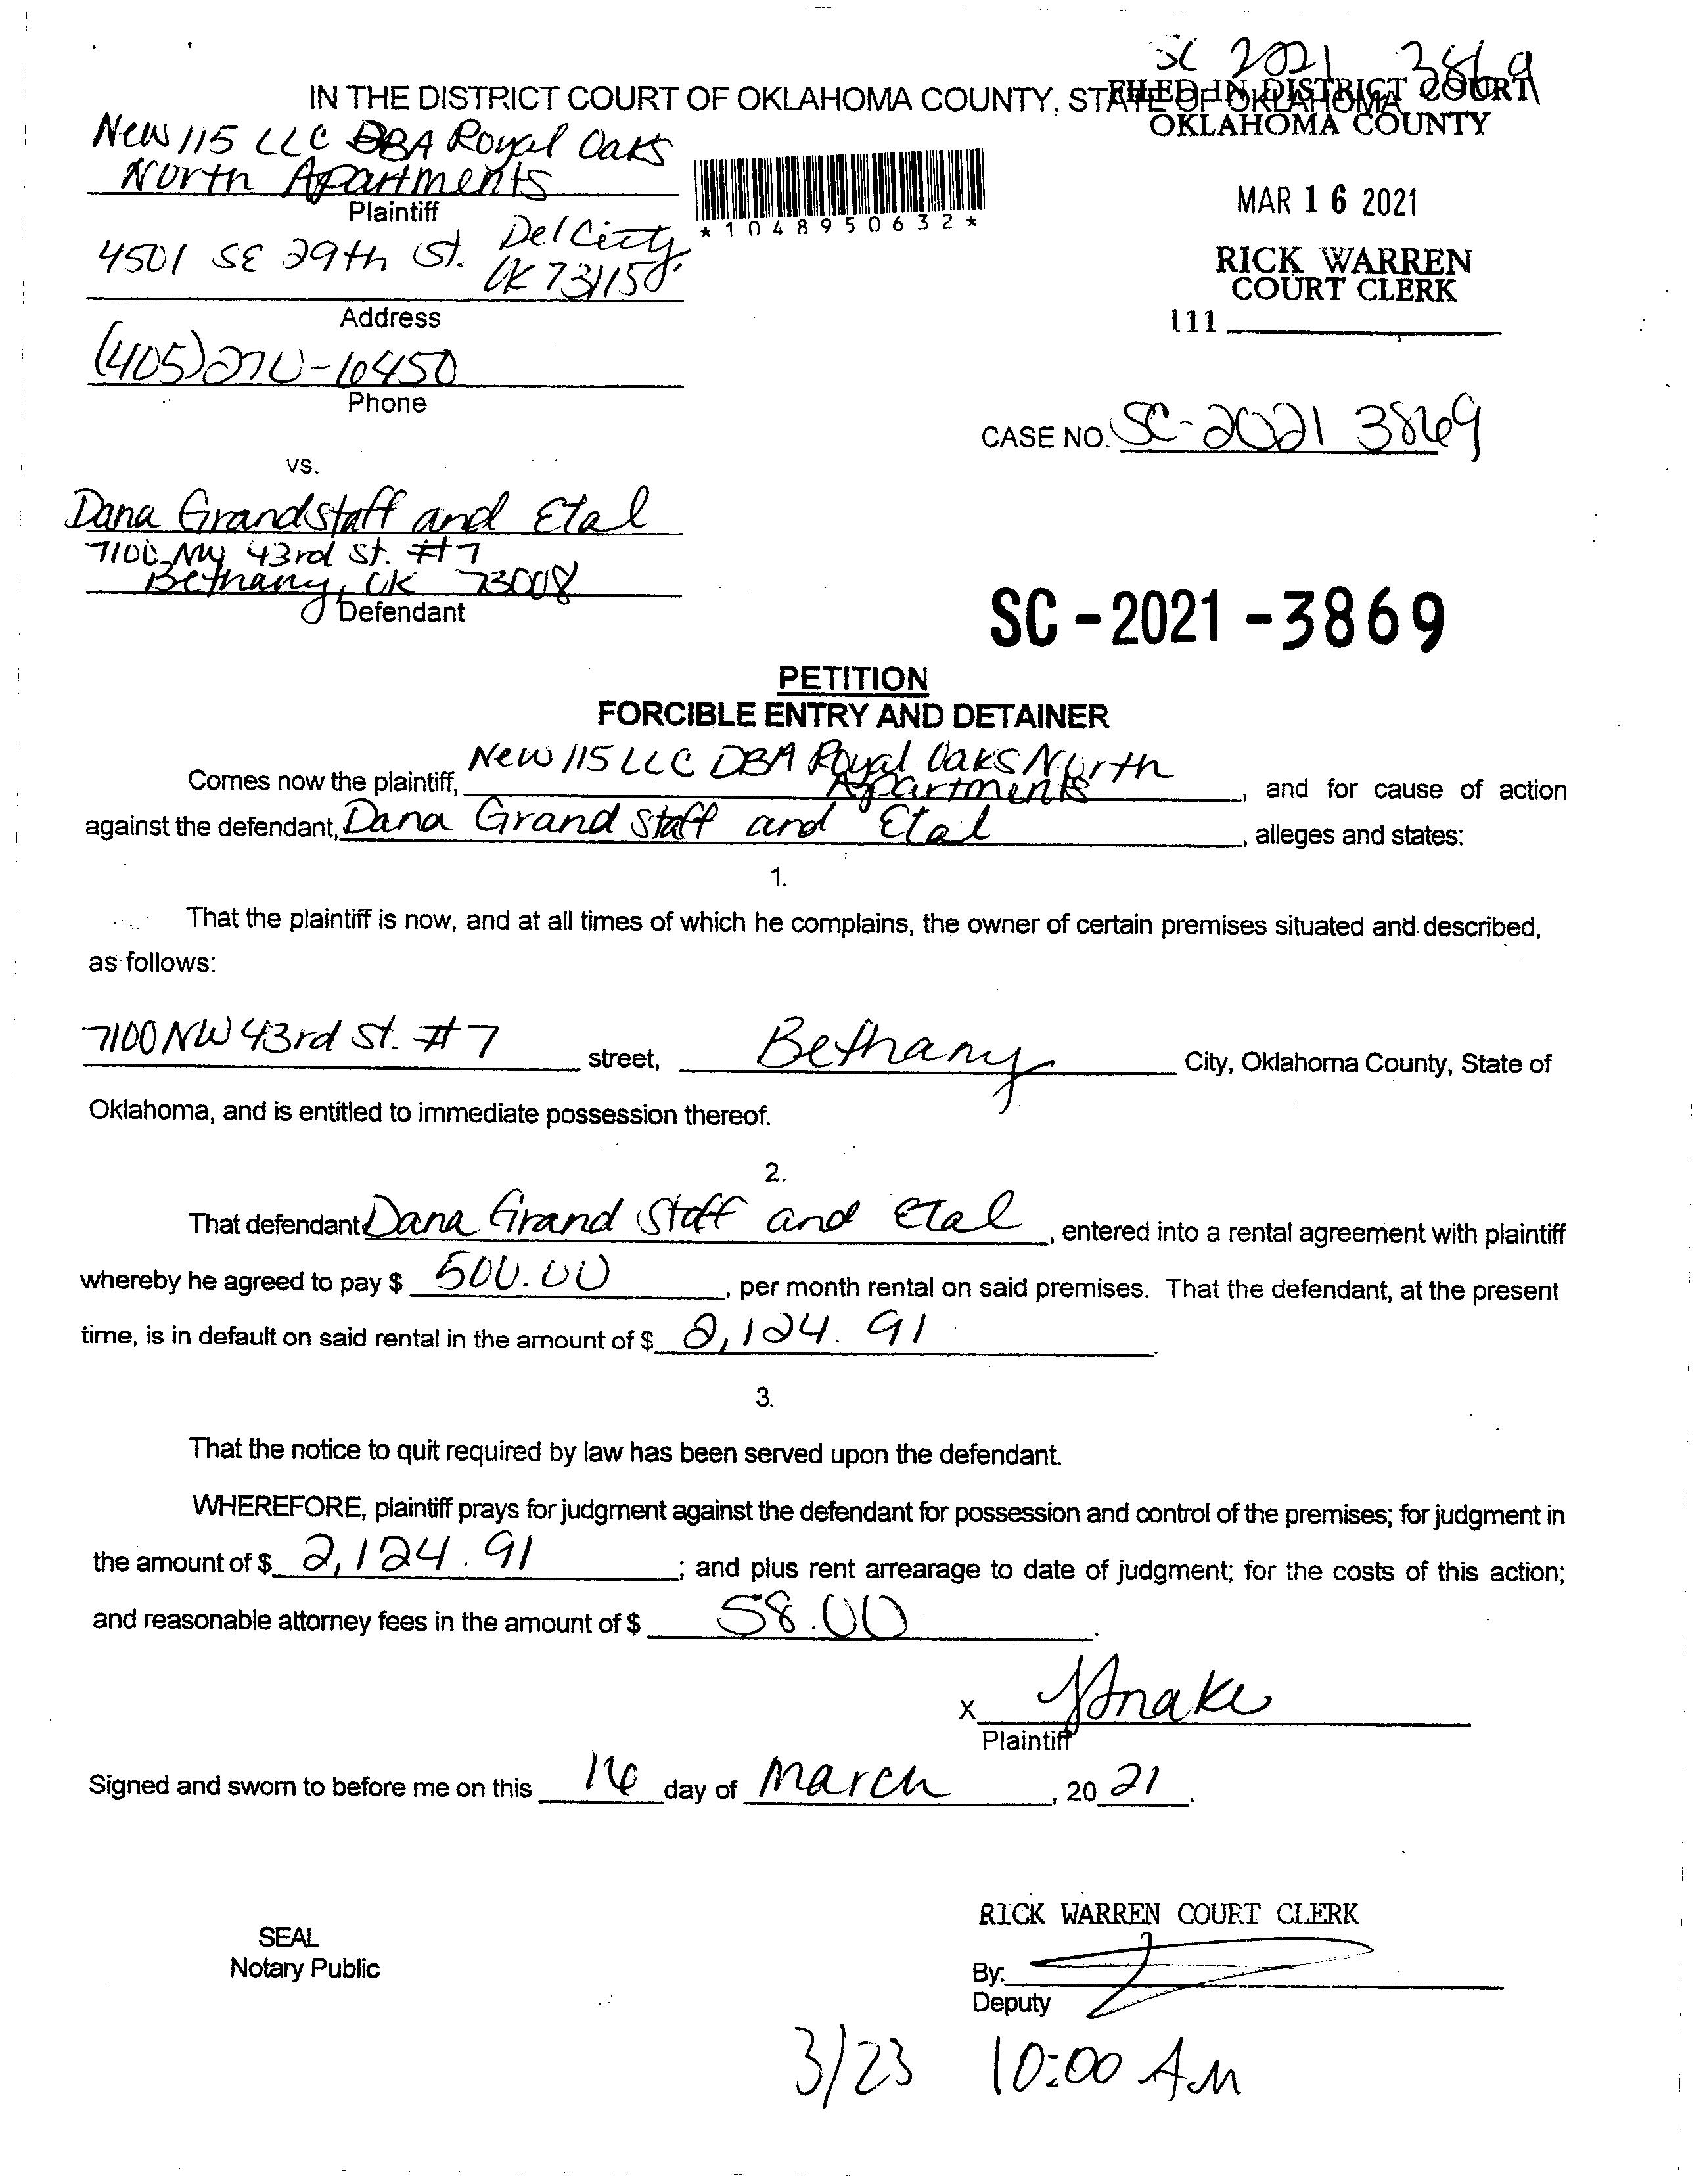 SC 2021 3869
IN THE DISTRICT COURT OF OKLAHOMA COUNTY, STATE OF OKLAHOMA
FILED IN DISTRICT COURT
OKLAHOMA COUNTY
New 115 LLC DBA Royal Oaks
North Apartments
Plaintiff
*1048950632*
MAR 16 2021
4501 SE 29th St. Del City,
OK 73115
Address
RICK WARREN
COURT CLERK
111
(405)270-6450
Phone
CASE NO. SC-2021 3869
vs.
Dana Grandstaff and Etal
7100 NW 43rd St. #7
Bethany, OK 73008
Defendant
SC-2021-3869
PETITION
FORCIBLE ENTRY AND DETAINER
Comes now the plaintiff, New 115 LLC DBA Royal Oaks North Apartments, and for cause of action
against the defendant, Dana Grand Staff and Etal, alleges and states:
1.
That the plaintiff is now, and at all times of which he complains, the owner of certain premises situated and described,
as follows:
7100 NW 43rd St. #7 street, Bethany City, Oklahoma County, State of
Oklahoma, and is entitled to immediate possession thereof.
2.
That defendant Dana Grand Staff and etal, entered into a rental agreement with plaintiff
whereby he agreed to pay $ 500.00, per month rental on said premises. That the defendant, at the present
time, is in default on said rental in the amount of $ 2,124.91.
3.
That the notice to quit required by law has been served upon the defendant.
WHEREFORE, plaintiff prays for judgment against the defendant for possession and control of the premises; for judgment in
the amount of $ 2,124.91; and plus rent arrearage to date of judgment; for the costs of this action;
and reasonable attorney fees in the amount of $ 58.00.
X
Plaintiff
Signed and sworn to before me on this 16 day of March, 20 21.
RICK WARREN COURT CLERK
SEAL
Notary Public
By:
Deputy
3/23 10:00 AM